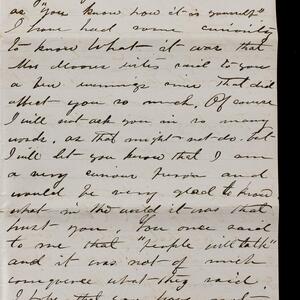 as "you know how it is yourself"
I have had some curiosity
to know what it was that
Mrs Moore said to you
a few evenings since that did
affect you so much. Of course
I will not ask you in so many
words, as that might not do. but
I will let you know that I am
a very curious person and
would be very glad to know
what in the world it was that
hurt you. You once said
to me that "people will talk"
and it was not of much
consequence what they said.
I hope that you have